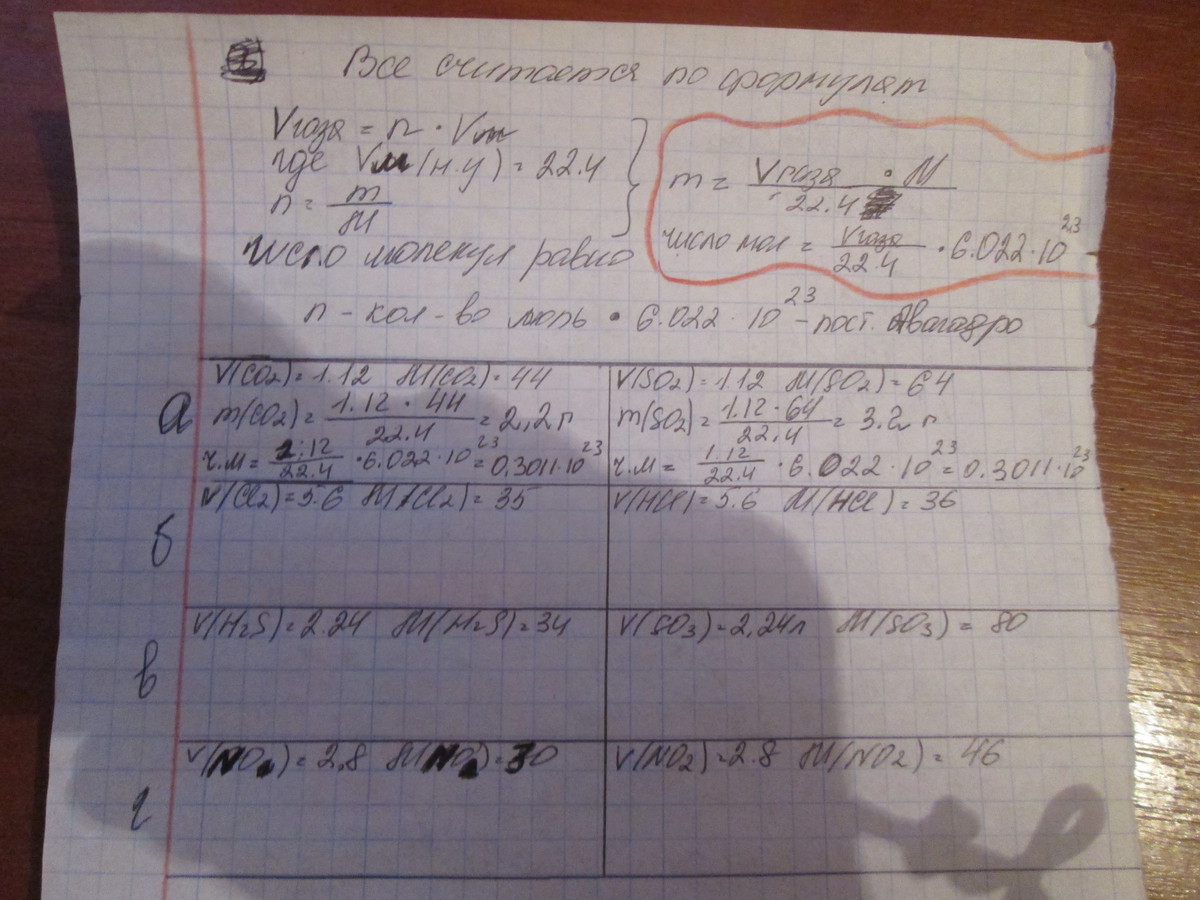 Все считается по формулам
Vгаза = n · Vm
где VM (н.у) = 22.4
n = m / M
число молекул равно
m = Vгаза · M / 22.4
число мол = Vгаза / 22.4 · 6.022·10^23
n - кол-во моль · 6.022·10^23 - пост. Авагадро
а
V(CO2) = 1.12 M(CO2) = 44
m(CO2) = 1.12 · 44 / 22.4 = 2,2 г
ч.м = 1.12 / 22.4 · 6.022·10^23 = 0.3011·10^23
V(SO2) = 1.12 M(SO2) = 64
m(SO2) = 1.12 · 64 / 22.4 = 3.2 г
ч.м = 1.12 / 22.4 · 6.022·10^23 = 0.3011·10^23
б
V(Cl2) = 5.6 M(Cl2) = 35
V(HCl) = 5.6 M(HCl) = 36
в
V(H2S) = 2.24 M(H2S) = 34
V(SO3) = 2,24л M(SO3) = 80
г
V(NO) = 2,8 M(NO) = 30
V(NO2) = 2.8 M(NO2) = 46